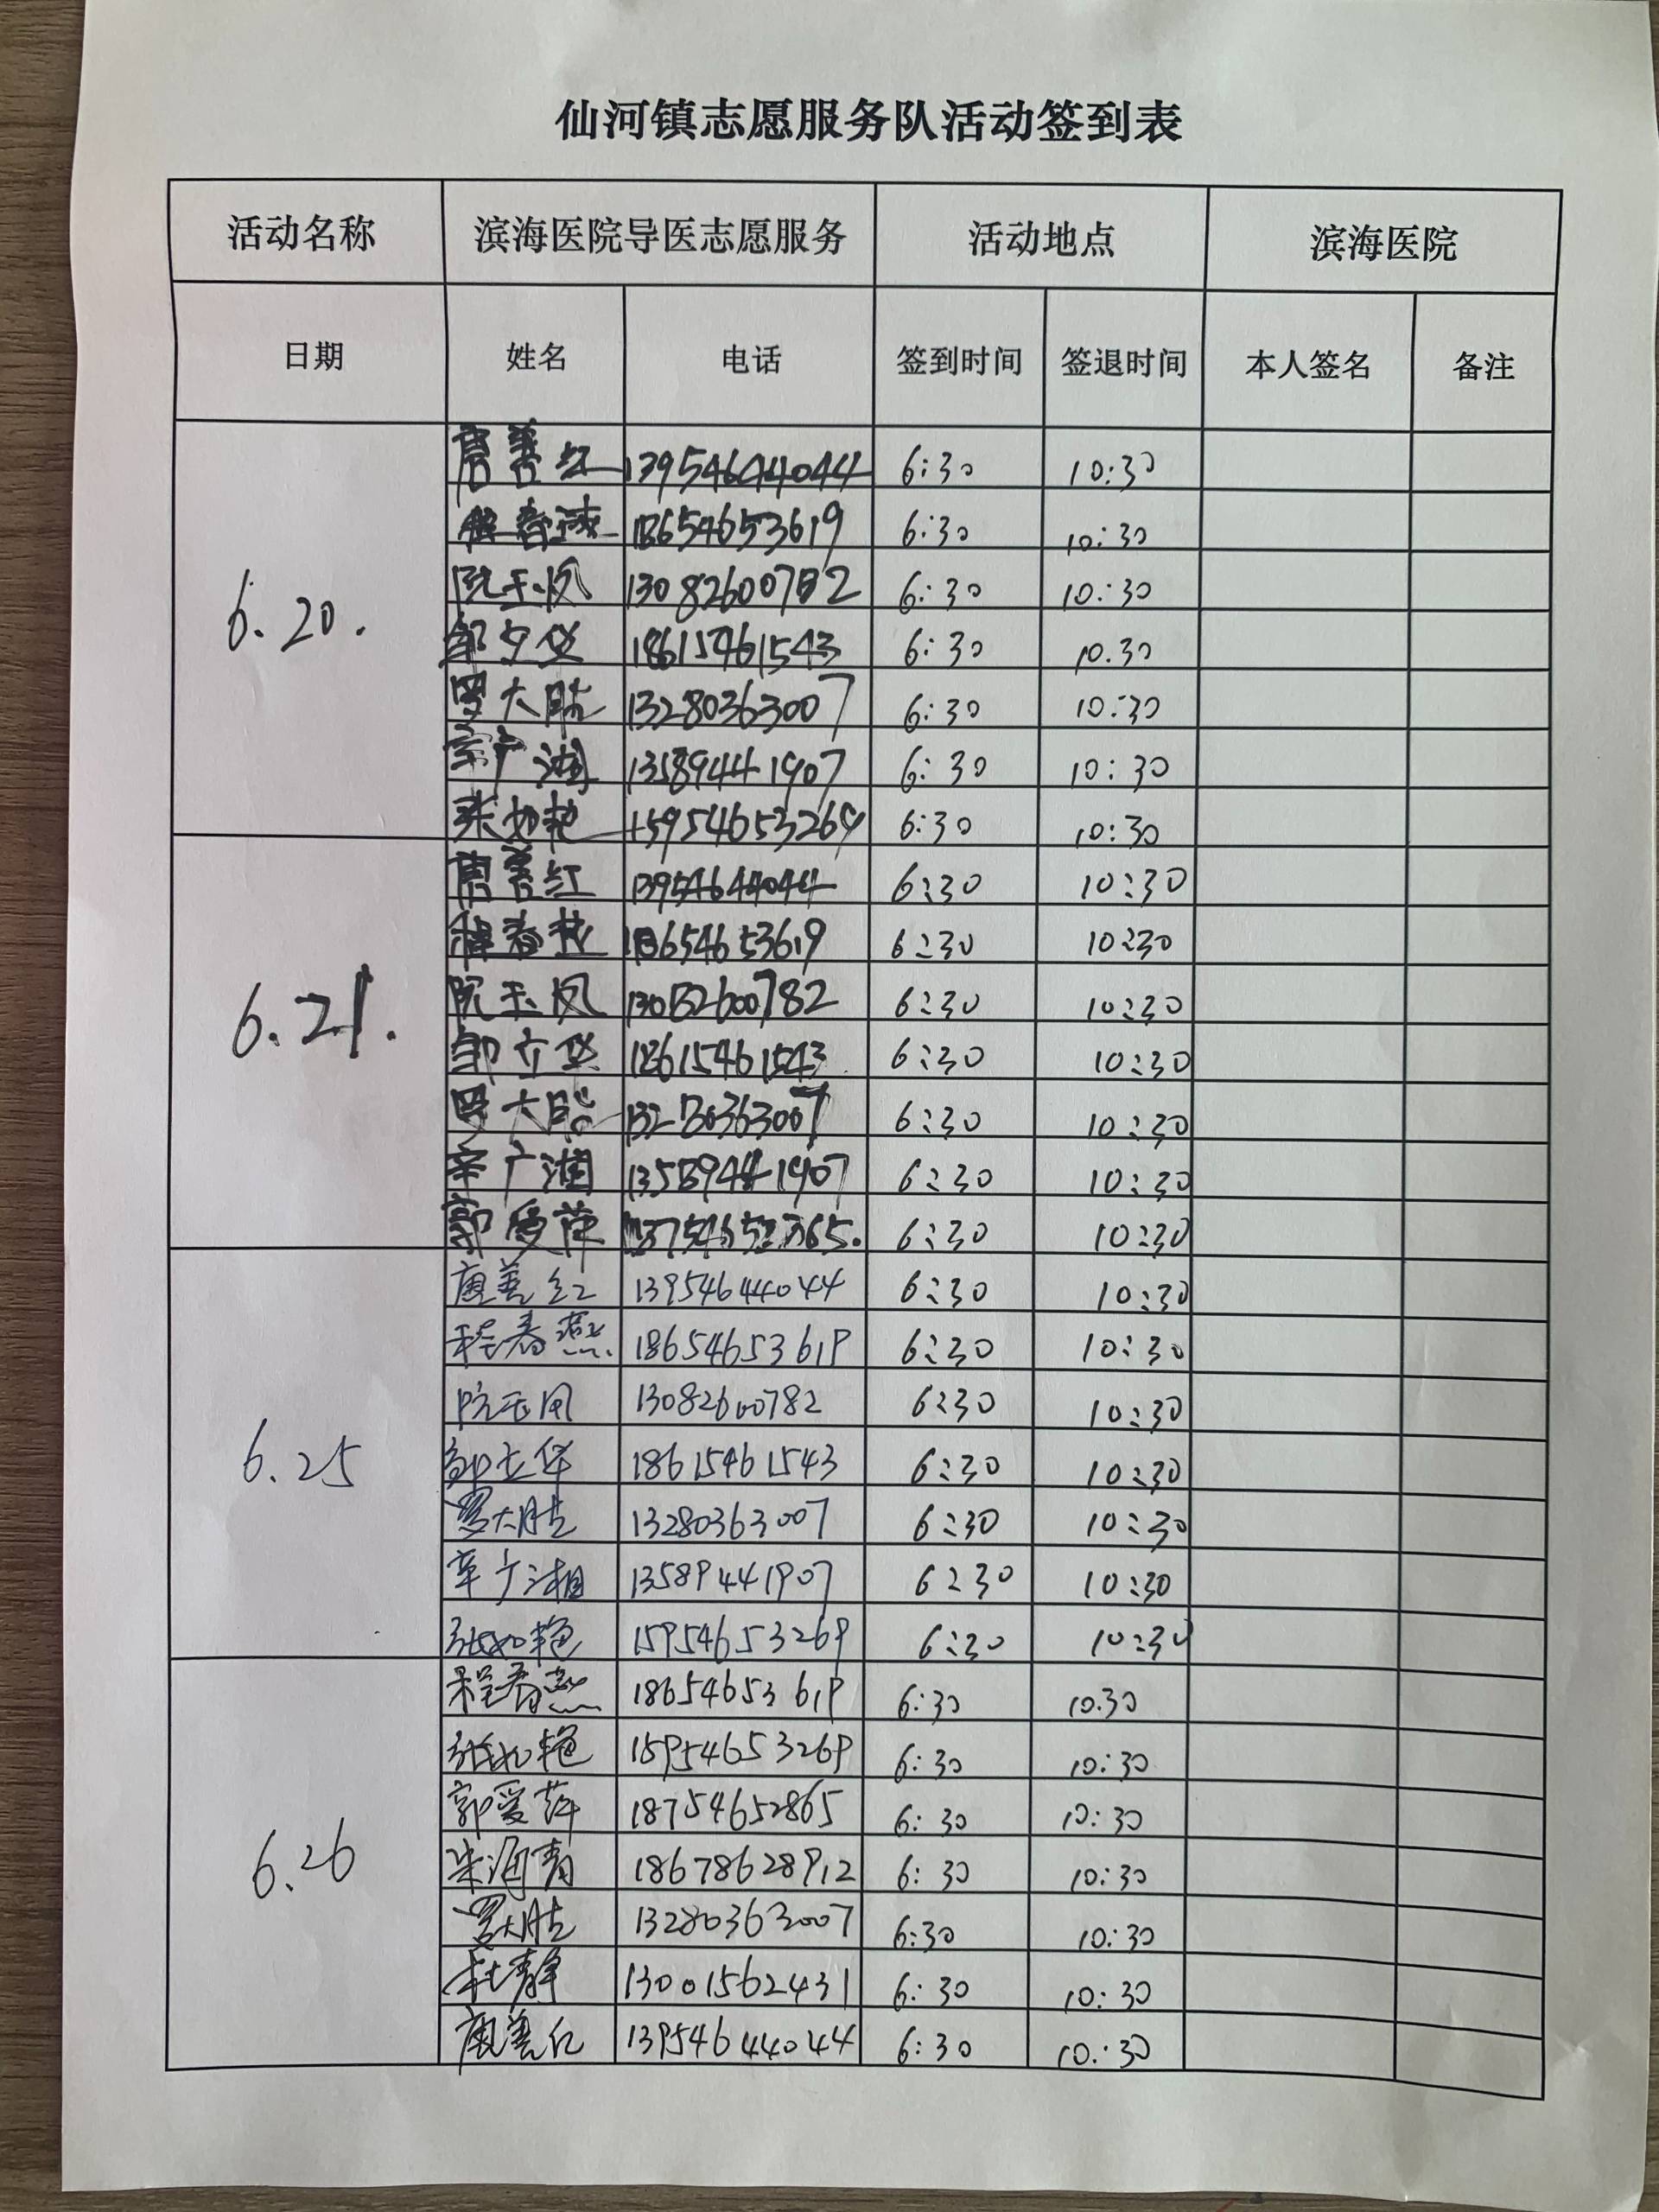 仙河镇志愿服务队活动签到表
活动名称 滨海医院导医志愿服务 活动地点 滨海医院
日期 姓名 电话 签到时间 签退时间 本人签名 备注
6.20.
唐善红 13954644044 6:30 10:30
程春 18654653619 6:30 10:30
阮玉凤 13082600782 6:30 10:30
邹立华 18615461543 6:30 10.30
罗大胜 13280363007 6:30 10:30
辛广湘 13589441907 6:30 10:30
张如艳 15954653269 6:30 10:30
6.21.
唐善红 13954644044 6:30 10:30
程春燕 18654653619 6:30 10:30
阮玉凤 13082600782 6:30 10:30
邹立华 18615461543 6:30 10:30
罗大胜 13280363007 6:30 10:30
辛广湘 13589441907 6:30 10:30
郭爱萍 6:30 10:30
6.25
唐善红 13954644044 6:30 10:30
程春燕 18654653619 6:30 10:30
阮玉凤 13082600782 6:30 10:30
邹立华 18615461543 6:30 10:30
罗大胜 13280363007 6:30 10:30
辛广湘 13589441907 6:30 10:30
张如艳 15954653269 6:30 10:30
6.26
程春燕 18654653619 6:30 10.30
张如艳 15954653269 6:30 10:30
郭爱萍 18754652865 6:30 10:30
海青 18678628912 6:30 10:30
罗大胜 13280363007 6:30 10:30
杜静 13001562431 6:30 10:30
唐善红 13954644044 6:30 10:30